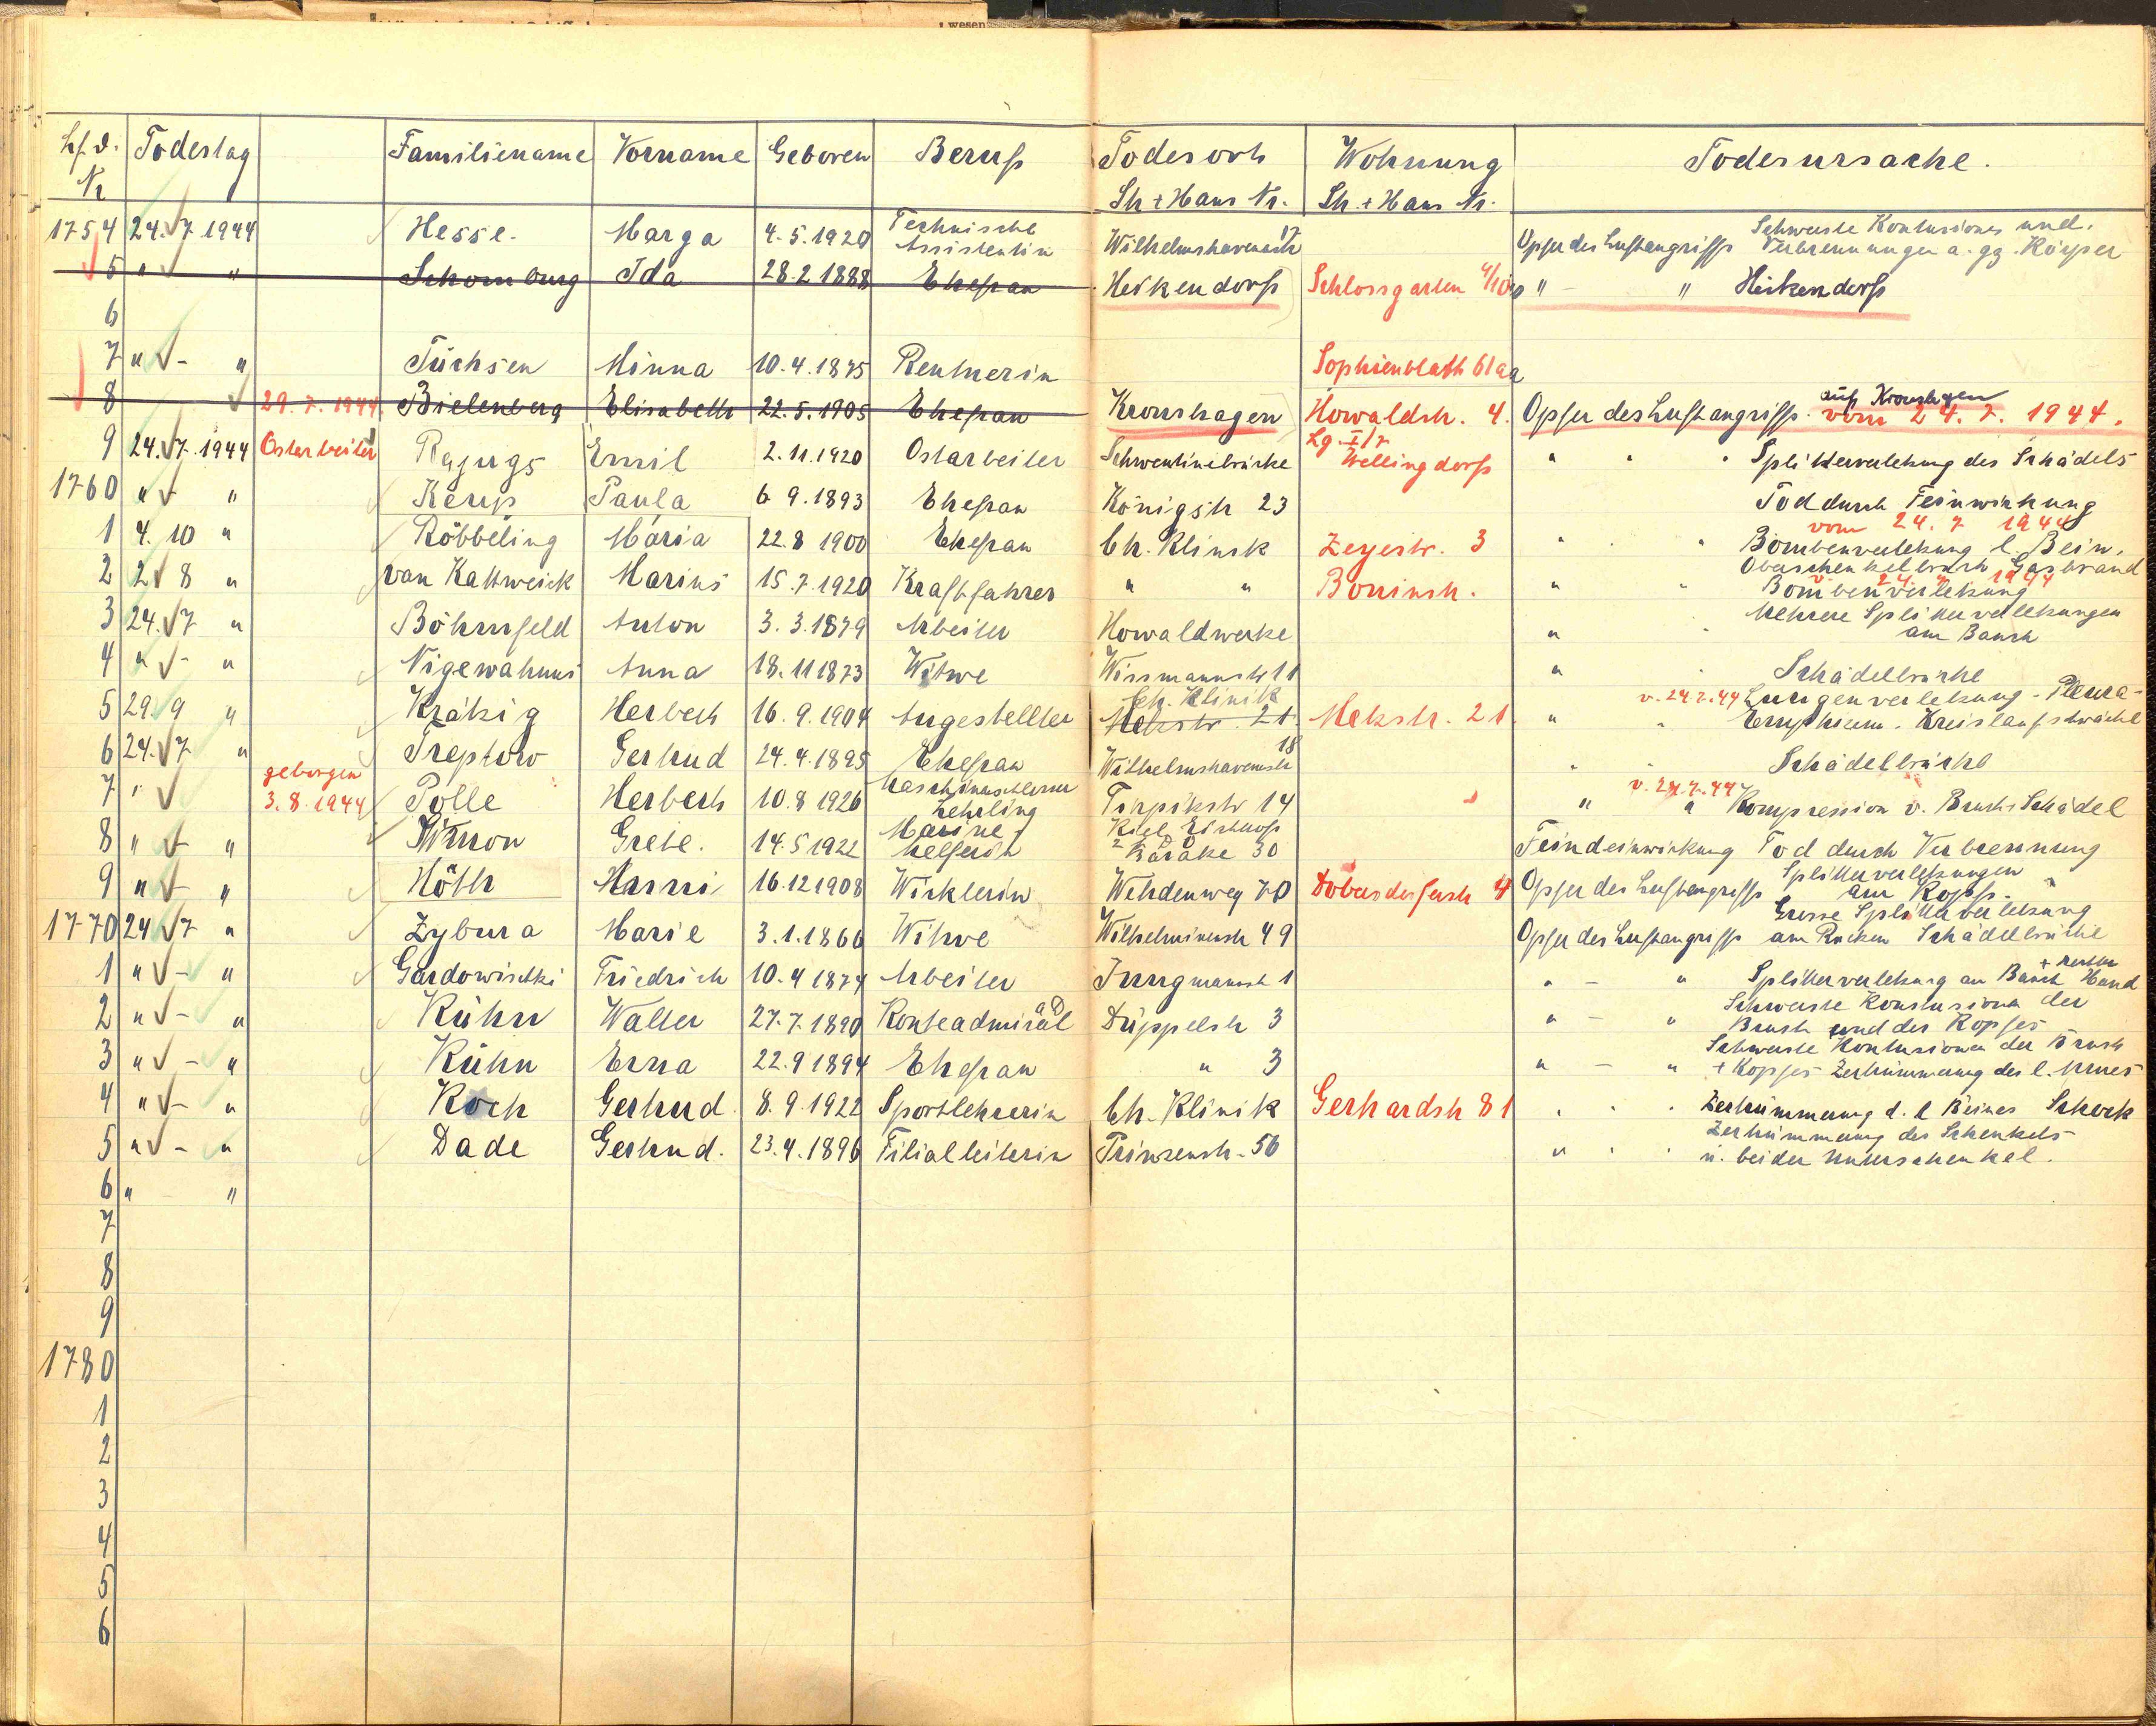 wesen
Lfd. Nr Todestag Familienname Vorname Geboren Beruf Todesort Str + Haus Nr. Wohnung Str. + Haus Nr. Todesursache.
1754 24.7.1944 Hesse. Marga 4.5.1920 Technische Assistentin Wilhelmshavenstr 17 Opfer des Luftangriffs Schwerste Kontusionen und. Verbrennungen a. gz. Körper
5 " " Schomburg Ida 28.2 1888 Ehefrau Heikendorf Schlossgarten 4/10 " " Heikendorf
6
7 " - " Tüchsen Minna 10.4.1875 Rentnerin Sophienblatt 61a
8 29.7.1944 Bielenberg Elisabeth 22.5.1905 Ehefrau Kronshagen Howaldstr. 4. Opfer des Luftangriffs auf Kronshagen vom 24.7.1944.
9 24.7.1944 Ostarbeiter Emil 2.11.1920 Ostarbeiter Schwentinebrücke Lg. Wellingdorf " " " Splitterverletzung des Schädels
1760 " - " Paula 6 9.1893 Ehefrau Königstr 23 Tod durch Feinwirkung
1 4.10 " Röbbeling Maria 22.8 1900 Ehefrau Ch. Klinik Zeyestr. 3 " " vom 24.7 1944 Bombenverletzung l. Bein. Oberschenkelbruch Gasbrand
2 2 8 " van Kattweick Marius 15.7.1920 Kraftfahrer " " Boninstr. " " v. 24.7 1944 Bombenverletzung
3 24.7 " Böhmfeld Anton 3.3.1879 Arbeiter Howaldwerke " Mehrere Splitterverletzungen am Bauch
4 " - " Nigewahnus Anna 18.11 1873 Witwe Wissmannstr 11 " Schädelbrüche
5 29.9 " Krätzig Herbert 16.9.1904 Angestellter Ch. Klinik Metzstr. 21 Metzstr. 21 " " v. 24.7.44 Lungenverletzung - Pleura- Emphiem. Kreislaufschwäche
6 24.7 " Treptow Gertrud 24.4.1895 Ehefrau Wilhelmshavenstr 18 " " Schädelbrüche
7 " geborgen 3.8.1944 Polle Herbert 10.8 1926 Maschinenschlosser Lehrling Tirpitzstr 14 " " v. 24.7.44 Kompression v. Brust Schädel
8 " - " Grete. 14.5 1922 Marine helferin Kiel Eichhof Barake 30 Feindeinwirkung Tod durch Verbrennung
9 " - " Höth Hanni 16.12 1908 Wicklerin Wehdenweg 70 4 Opfer des Luftangriffs Splitterverletzungen am Kopf. "
1770 24.7 " Zybura Marie 3.1.1866 Witwe Wilhelminenstr 49 Opfer des Luftangriffs Grosse Splitterverletzung am Rücken Schädelbrüche
1 " - " Gardowischki Friedrich 10.4 1874 Arbeiter Jungmannstr 1 " - " Splitterverletzung am Bauch + rechter Hand
2 " - " Kühn Walter 27.7.1890 Konteadmiral aD Düppelstr 3 " - " Schwerste Kontusionen der Brust und des Kopfes
3 " - " Kühn Erna 22.9 1894 Ehefrau " 3 " - " Schwerste Kontusionen der Brust + Kopfes Zertrümmerung des l. Armes
4 " - " Koch Gertrud. 8.9.1922 Sportlehrerin Ch. Klinik Gerhardstr 81 " " " Zertrümmerung d. l Beines Schock
5 " - " Dade Gertrud. 23.4.1896 Filialleiterin Prinzenstr. 56 " " " Zertrümmerung des Schenkels u. beider Unterschenkel.
6 " - "
7
8
9
1780
1
2
3
4
5
6